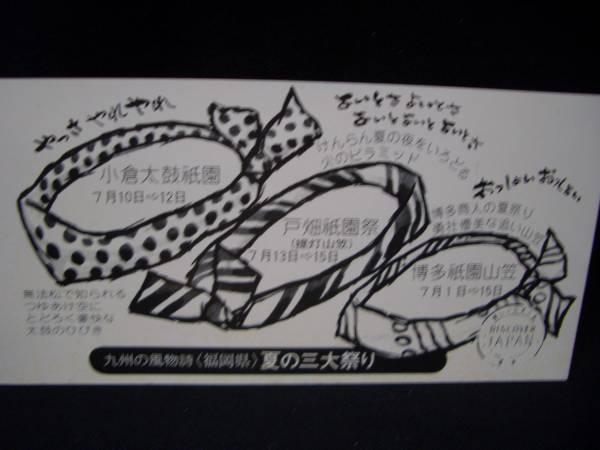 やっさ やれやれ
小倉太鼓祇園
7月10日⇒12日
無法松で知られる
つゆあけ空に
ととろく豪快な
太鼓のひびき
よいとさ よいとさ
よいとよいと よいとさ
けんらん夏の夜をいろどる
火のピラミッド
戸畑祇園祭
(提灯山笠)
7月13日⇒15日
おっしょい おっしょい
博多商人の夏祭り
勇壮優美な追い山笠
博多祇園山笠
7月1日⇒15日
九州の風物詩〈福岡県〉夏の三大祭り
DISCOVER
JAPAN